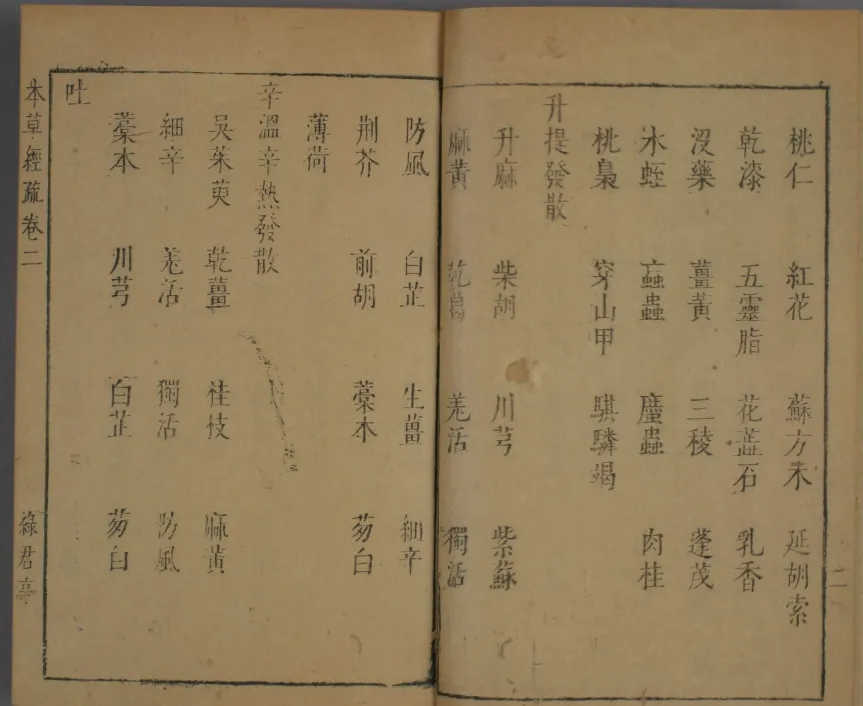 桃仁 紅花 蘇方木 延胡索
乾漆 五靈脂 花蕋石 乳香
沒藥 薑黃 三稜 蓬茂
水蛭 蝱蟲 䗪蟲 肉桂
桃梟 穿山甲 騏驎竭
升提發散
升麻 柴胡 川芎 紫蘇
麻黃 乾葛 羗活 獨活
防風 白芷 生薑 細辛
荆芥 前胡 藁本 葱白
薄荷
辛溫辛熱發散
吳茱萸 乾薑 桂枝 麻黃
細辛 羗活 獨活 防風
藁本 川芎 白芷 葱白
吐
本草經疏卷二
綠君亭
二